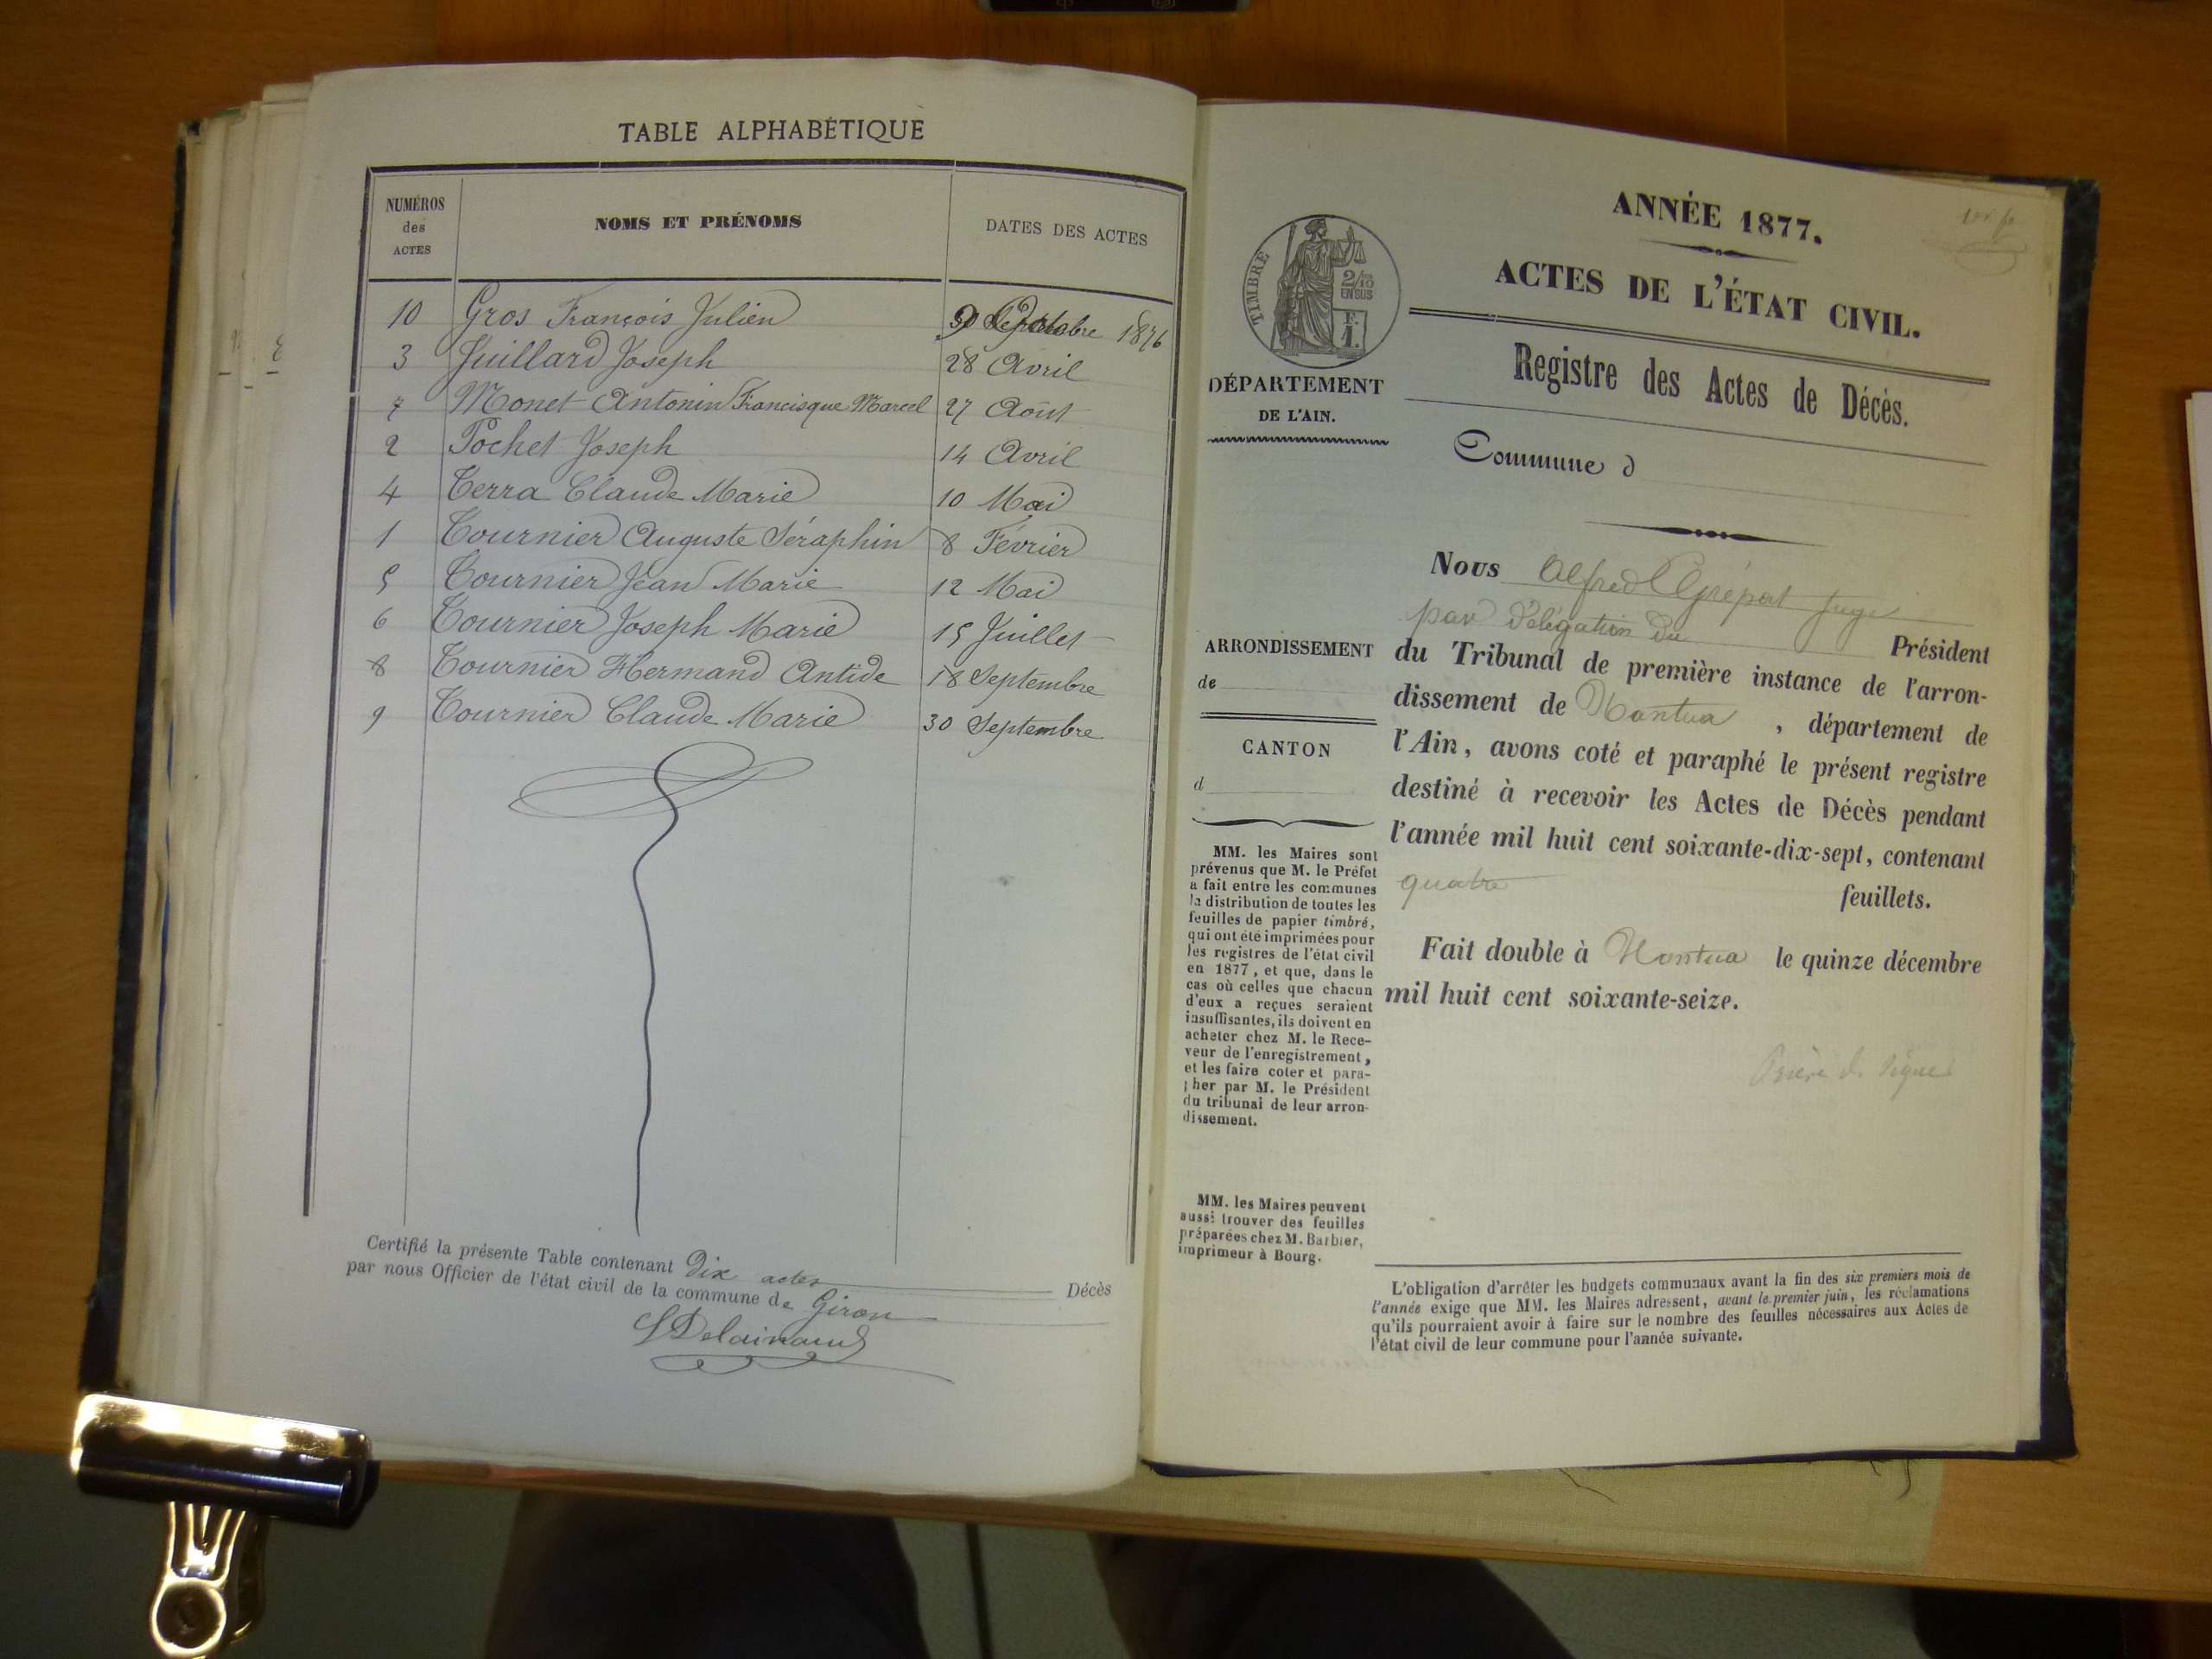 TABLE ALPHABÉTIQUE
NUMÉROS des ACTES NOMS ET PRÉNOMS DATES DES ACTES
10 Gros François Julien 9 octobre 1876
3 Juillard Joseph 28 Avril
7 Monet Antonin Francisque Marcel 27 Août
2 Pochet Joseph 14 Avril
4 Terra Claude Marie 10 Mai
1 Tournier Auguste Séraphin 8 Février
5 Tournier Jean Marie 12 Mai
6 Tournier Joseph Marie 15 Juillet
8 Tournier Hermand Antide 18 Septembre
9 Tournier Claude Marie 30 Septembre
Certifié la présente Table contenant Dix actes Décès
par nous Officier de l'état civil de la commune de Giron
ANNÉE 1877.
ACTES DE L'ÉTAT CIVIL.
Registre des Actes de Décès.
Commune d
TIMBRE
2/10
EN SUS
F.
1.
DÉPARTEMENT
DE L'AIN.
ARRONDISSEMENT
de
CANTON
d
MM. les Maires sont
prévenus que M. le Préfet
a fait entre les communes
la distribution de toutes les
feuilles de papier timbré,
qui ont été imprimées pour
les registres de l'état civil
en 1877, et que, dans le
cas où celles que chacun
d'eux a reçues seraient
insuffisantes, ils doivent en
acheter chez M. le Rece-
veur de l'enregistrement,
et les faire coter et para-
pher par M. le Président
du tribunal de leur arron-
dissement.
MM. les Maires peuvent
aussi trouver des feuilles
préparées chez M. Barbier,
imprimeur à Bourg.
Nous Alfred juge
par délégation du Président
du Tribunal de première instance de l'arron-
dissement de Nantua, département de
l'Ain, avons coté et paraphé le présent registre
destiné à recevoir les Actes de Décès pendant
l'année mil huit cent soixante-dix-sept, contenant
quatre feuillets.
Fait double à Nantua le quinze décembre
mil huit cent soixante-seize.
L'obligation d'arrêter les budgets communaux avant la fin des six premiers mois de
l'année exige que MM. les Maires adressent, avant le premier juin, les réclamations
qu'ils pourraient avoir à faire sur le nombre des feuilles nécessaires aux Actes de
l'état civil de leur commune pour l'année suivante.